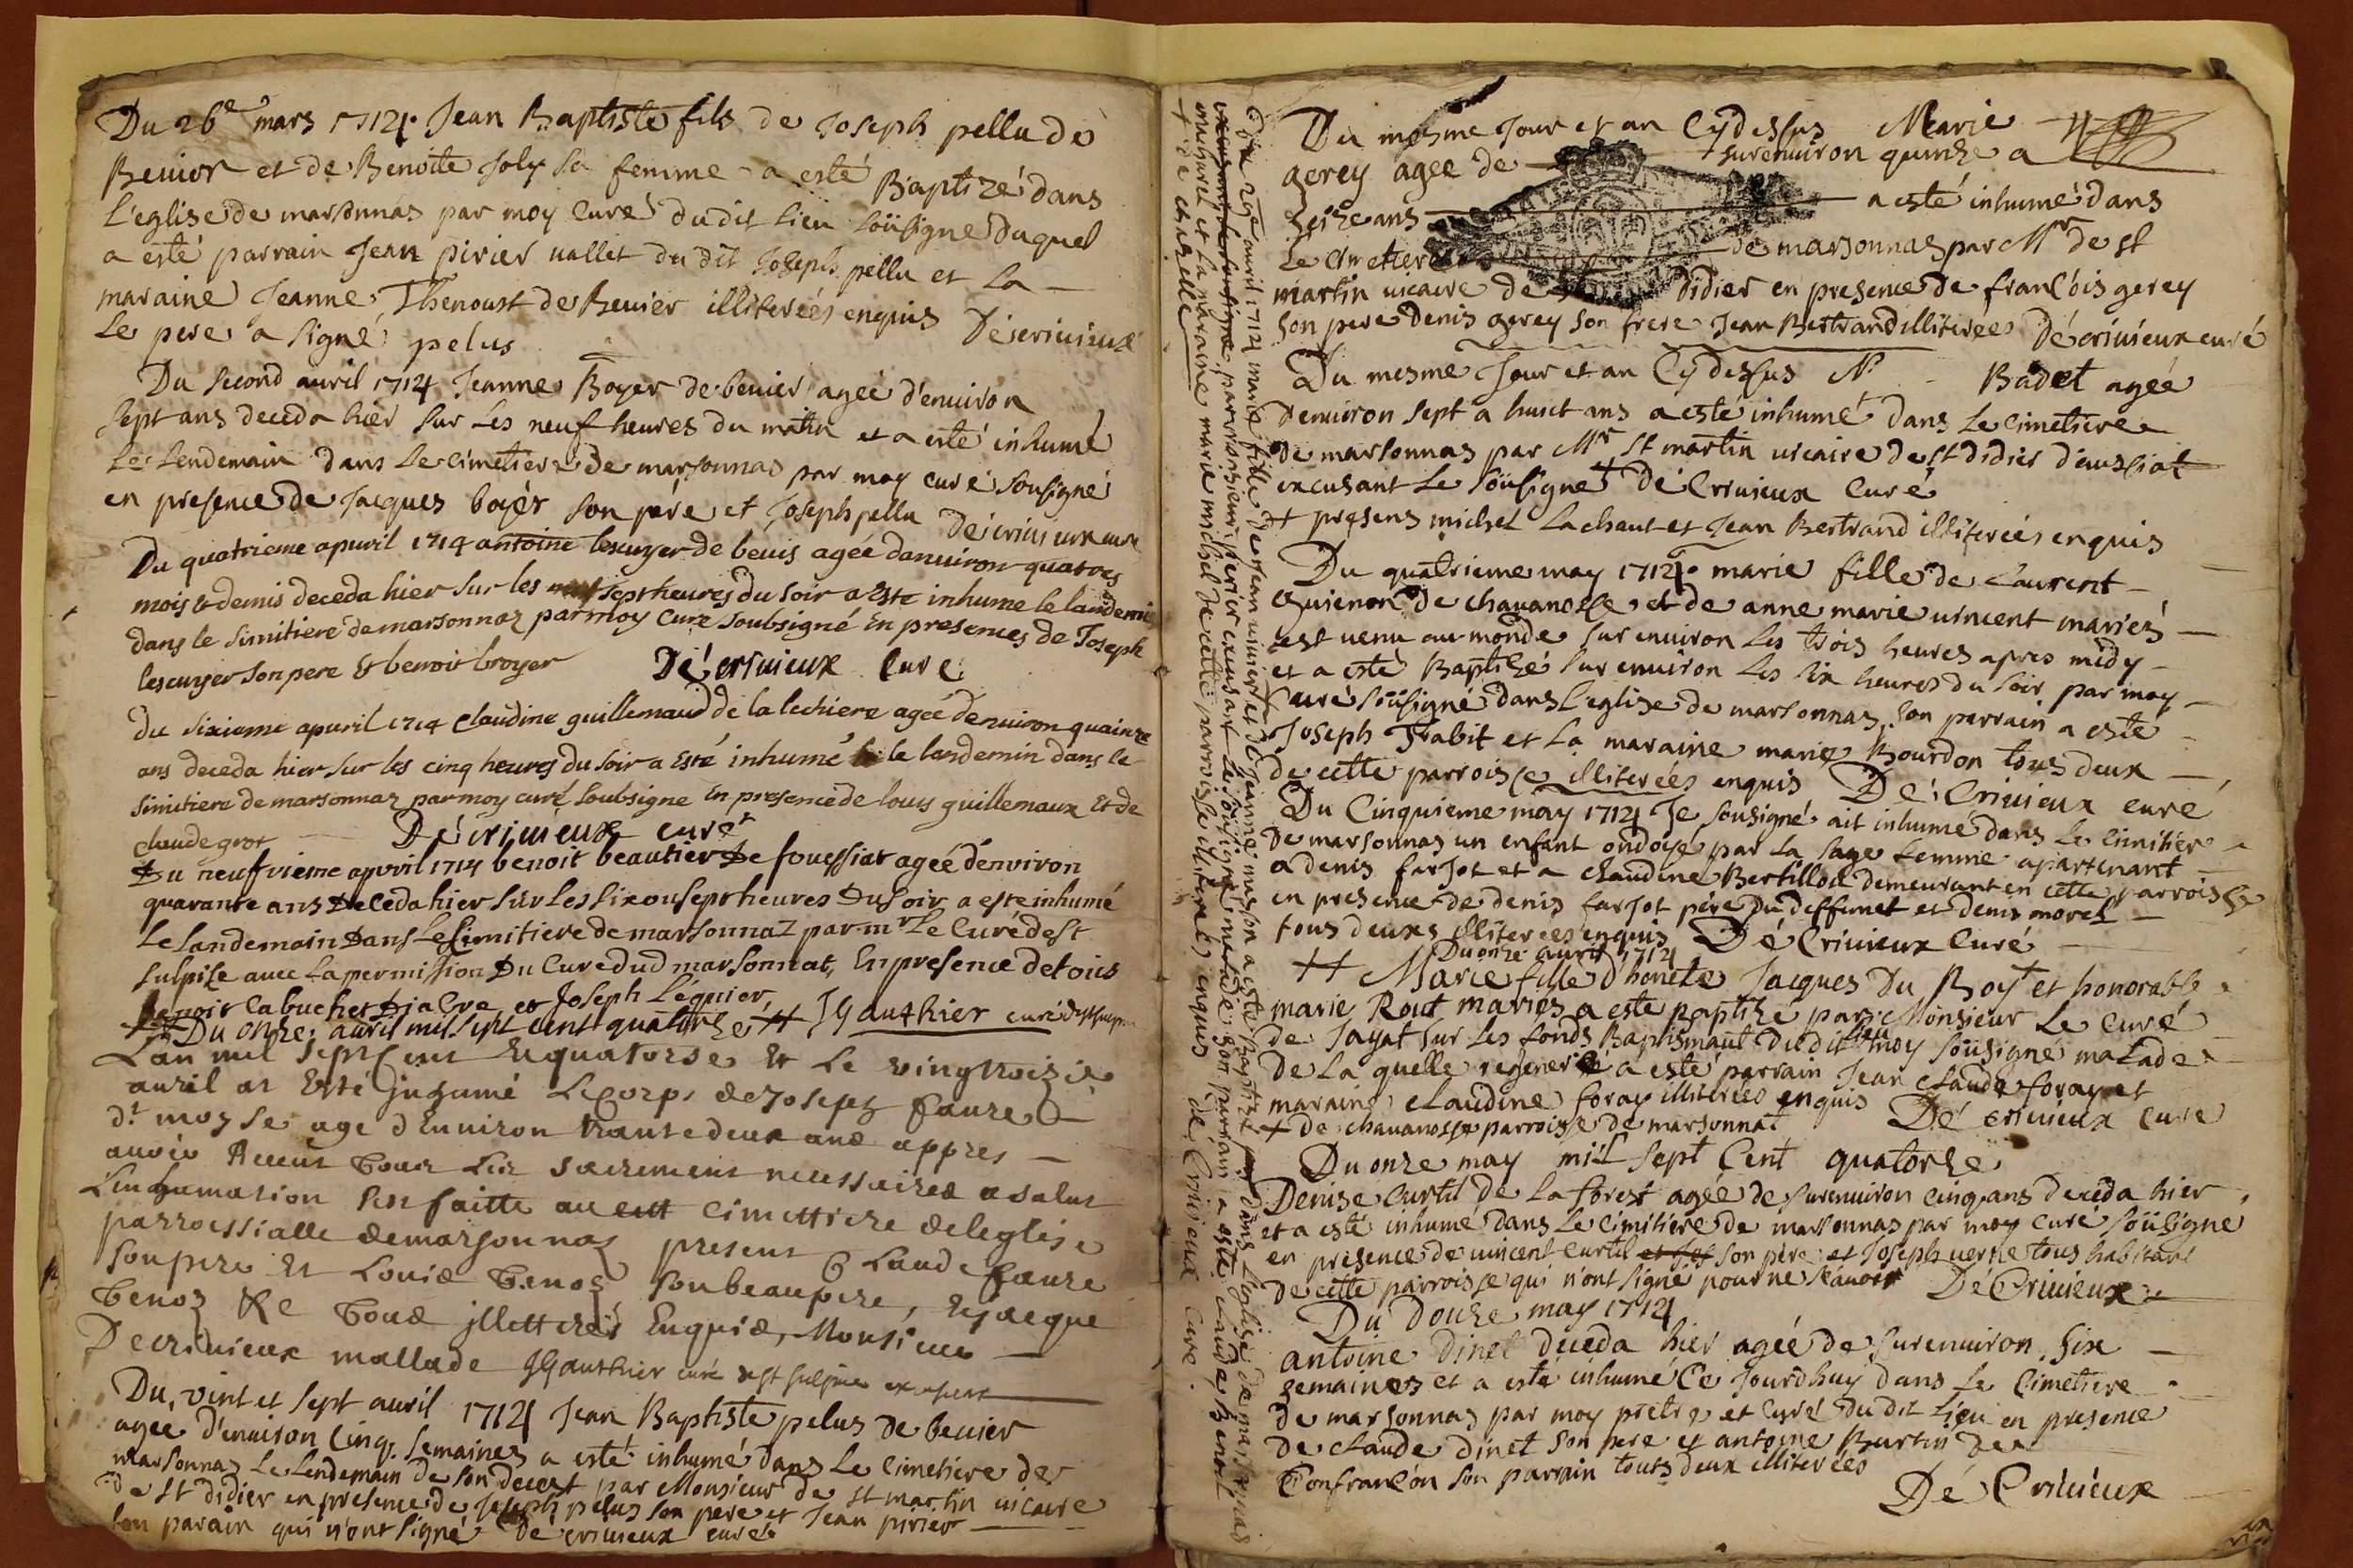 Du 26e mars 1714 Jean Baptiste fils de Joseph pellu de
Beuier et de Benoite Joly sa femme a esté Baptizé dans
L'eglise de marsonnas par moy Curé du dit lieu soûsigné Duquel
a esté parrain Jean pirier uallet du dit Joseph pellu et La
maraine Jeanne Thenoust de Beuier illiterées enquis Décriuieux
Le pere a signé pelus
Du second auril 1714 Jeanne Boyer de beuier agée d'enuiron
sept ans deceda hier sur les neuf heures du matin et a esté inhumé
Le Lendemain dans Le cimetiere de marsonnas par moy curé sousigné
en presence de Jacques boyer son père et Joseph pellu Décriuieux curé
Du quatrieme apuril 1714 antoine lescuyer de beuis agée danuiron quatres
mois & demis deceda hier sur les sept heures du soir a Este inhume le landemin
dans le simitiere de marsonnaz par moy Cure soubsigné En presences de Joseph
lescuyer son pere & benoit broyer Décriuieux Curé
du sixieme apuril 1714 Claudine guillemaud de la lechiere agée denuiron quainze
ans deceda hier sur les cinq heures du soir a Esté inhumé le landemin dans le
simitiere de marsonnaz par moy curé soubsigne En presence de louis guillemaux Et de
claude grot Décriuieux curé
Du neufvieme apvril 1714 benoit beautier De fouessiat agée d'environ
quarante ans Deceda hier sur Les six ou sept heures Du soir a este inhumé
Le landemain Dans Le Cimitiere de marsonnaZ par mr Le Curé de st
sulpise avec La permission Du Curé dud marsonnat, En presence de toies
benoit labuches et Joseph Léquier,
Du onze auril mil sept cent quatorze # JGauthier curé
Lan mil sept cent Et quatorse Et Le vingt troizie
auril at Esté Jnhumé Le Corps de Joseph faure
dt moyse age d Enuiron trante deux ans appres
auoir Receut tous Les sacrement necessaires a salut
L'inhumation sest faitte au cimettiere de leglise
parroessialle de marsonnas present Claude faure
son pere Et Louis tenoz son beaupere, Et Jacque
tenoz Re tous jllettrés Enquis, Monsieur
Decriuieux mallade JGauthier curé de st sulpice
Du vint et sept auril 1714 Jean Baptiste pelus de beuier
agee d'enuiron Cinq semaines a esté inhumé dans Le cimetiere de
marsonnas Le Lendemain de son decest par Monsieur de st martin uicaire
de st didier en presence de Joseph pelus son pere et Jean pirier
son parain qui n'ont signé Décriuieux curé
Du 29e auril 1714 marie fille de Jean uiuier et de Jeanne masson a esté Baptizé dans L'eglise de marsonnas
par monsieur Perier excusant Le soûsigné malade son parrain a esté Claude Benoit
et La maraine marie michel de cette parroisse illiteré enquis Dé Criuieux Curé
+ de chizelle
Du mesme Jour et an Cy dessus Marie
gerey agee de surenuiron quinze a
seize ans a esté inhumé dans
Le Cimetiere de marsonnas par Mr de st
martin uicaire de didier en presence de francois gerey
son pere Denis gerey son frere Jean Bertrand illiterées Décriuieux curé
Du mesme Jour et an Cy dessus N. Badet agée
denuiron sept a huict ans a esté inhumé dans Le cimetiere
de marsonnas par Mr St martin uicaire de st didier d'aussiat
excusant Le soûsigné + Dé Criuieux Curé
+ presens michel Lachaut et Jean Bertrand illiterées enquis
Du quatrieme may 1714 marie fille de Laurent
Guienon de chauanosse et de anne marie uincent mariez
est uenu au monde sur enuiron les trois heures apres midy
et a esté Baptizé sur enuiron Les six heures du soir par moy
Curé soûsigné dans L'eglise de marsonnas. son parrain a esté
Joseph Trabit et La maraine marie Bourdon tous deux
de cette parroisse illiterées enquis Dé Criuieux curé
Du Cinquieme may 1714 Je sousigné ait inhumé dans Le Cimitiere
de marsonnas un enfant ondoyé par La sage femme apartenant
a denis farjot et a claudine Bertillod demeurant en cette parroisse
en presence de denis farjot pere du deffunct et denis morel
tous deuxs illiterees enquis Dé Criuieux Curé
Du onze auril 1714
# Marie fille d'honete Jacques Du Boy + et honorable
marie Rout mariés a este Baptizé par Monsieur Le Curé
de Jayat sur Les fonds Baptismaut du dit lieu moy soûsigné malade
de La quelle regeneré a esté parrain Jean Claude foray et
maraine claudine foray illiterées enquis Dé criuieux Curé
+ de chauanosse parroisse de marsonnat
Du onze may mil sept Cent quatorze
Denise Curtil de La forest agée de surenuiron cinq ans deceda hier
et a esté inhumé dans Le Cimitiere de marsonnas par moy curé soûsigne
en presence de uincent Curtil et Jos son père et Joseph uerne tous habitant
de cette parroisse qui n'ont signé pour ne sçauoir De Criuieux
Du Douze may 1714
antoine Dinet deceda hier agée de surenuiron six
semaines et a esté inhumé Ce Jourdhuy dans Le Cimetiere
de marsonnas par moy pretre et Curé du dit Lieu en presence
de claude dinet son pere et antoine Burtin de
Confrançon son parrain touts deux illiterées
Dé Criuieux